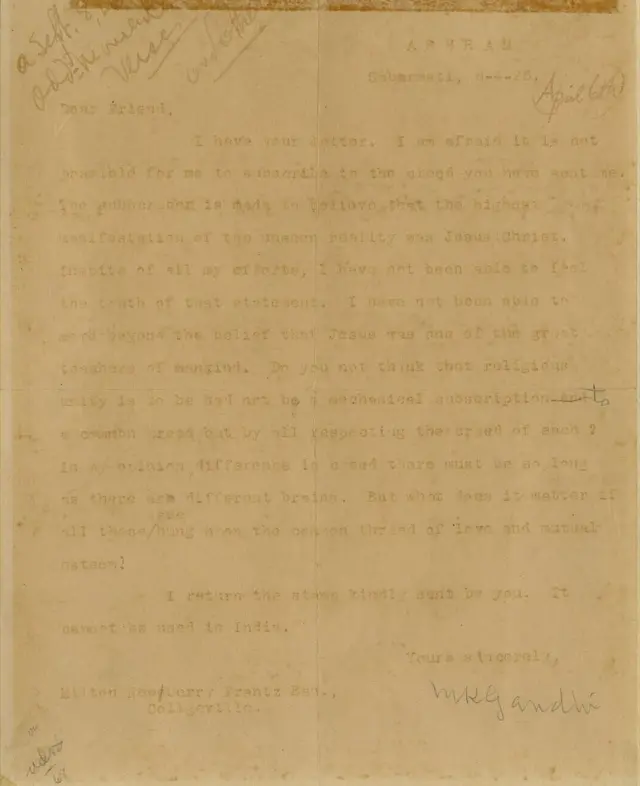 a Sept. 8,
add:
verse
ASHRAM
Sabarmati, 6-4-26.
April 6th
Dear Friend,
I have your letter. I am afraid it is not
possible for me to subscribe to the creed you have sent me.
The subscriber is made to believe that the highest
manifestation of the unseen reality was Jesus Christ.
Inspite of all my efforts, I have not been able to feel
the truth of that statement. I have not been able to
move beyond the belief that Jesus was one of the great
teachers of mankind. Do you not think that religious
unity is to be had not by a mechanical subscription to
a common creed but by all respecting the creed of each ?
In my opinion, difference in creed there must be so long
as there are different brains. But what does it matter if
all these/hung upon the common thread of love and mutual
esteem?
are
I return the stamp kindly sent by you. It
cannot be used in India.
Yours sincerely,
MKGandhi
Milton Newberry Frantz Esq.,
Collgeville.